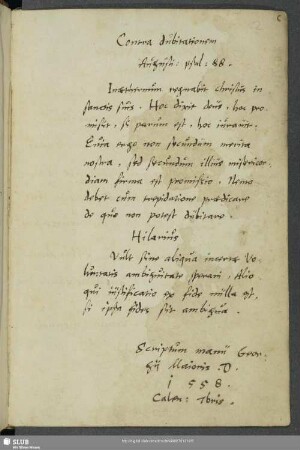 Contra dubitationem
Augusti: psal: 88.
Inaeternum regnabit Christus in
sanctis suis. Hoc dixit deus, hoc pro-
misit, si parum est, hoc iuravit.
Quia ergo non secundum merita
nostra, sed secundum illius misericor
diam firma est promissio. Nemo
debet cum trepidatione praedicare
de quo non potest dubitare.
Hilarius
Vult sine aliqua incertae vo
luntatis ambiguitate sperari. Alio
qui iustificatio ex fide nulla est,
si ipsa fides fit ambigua.
Scriptum manu Geor-
gii Maioris D.
1558.
Calen:
SLUB